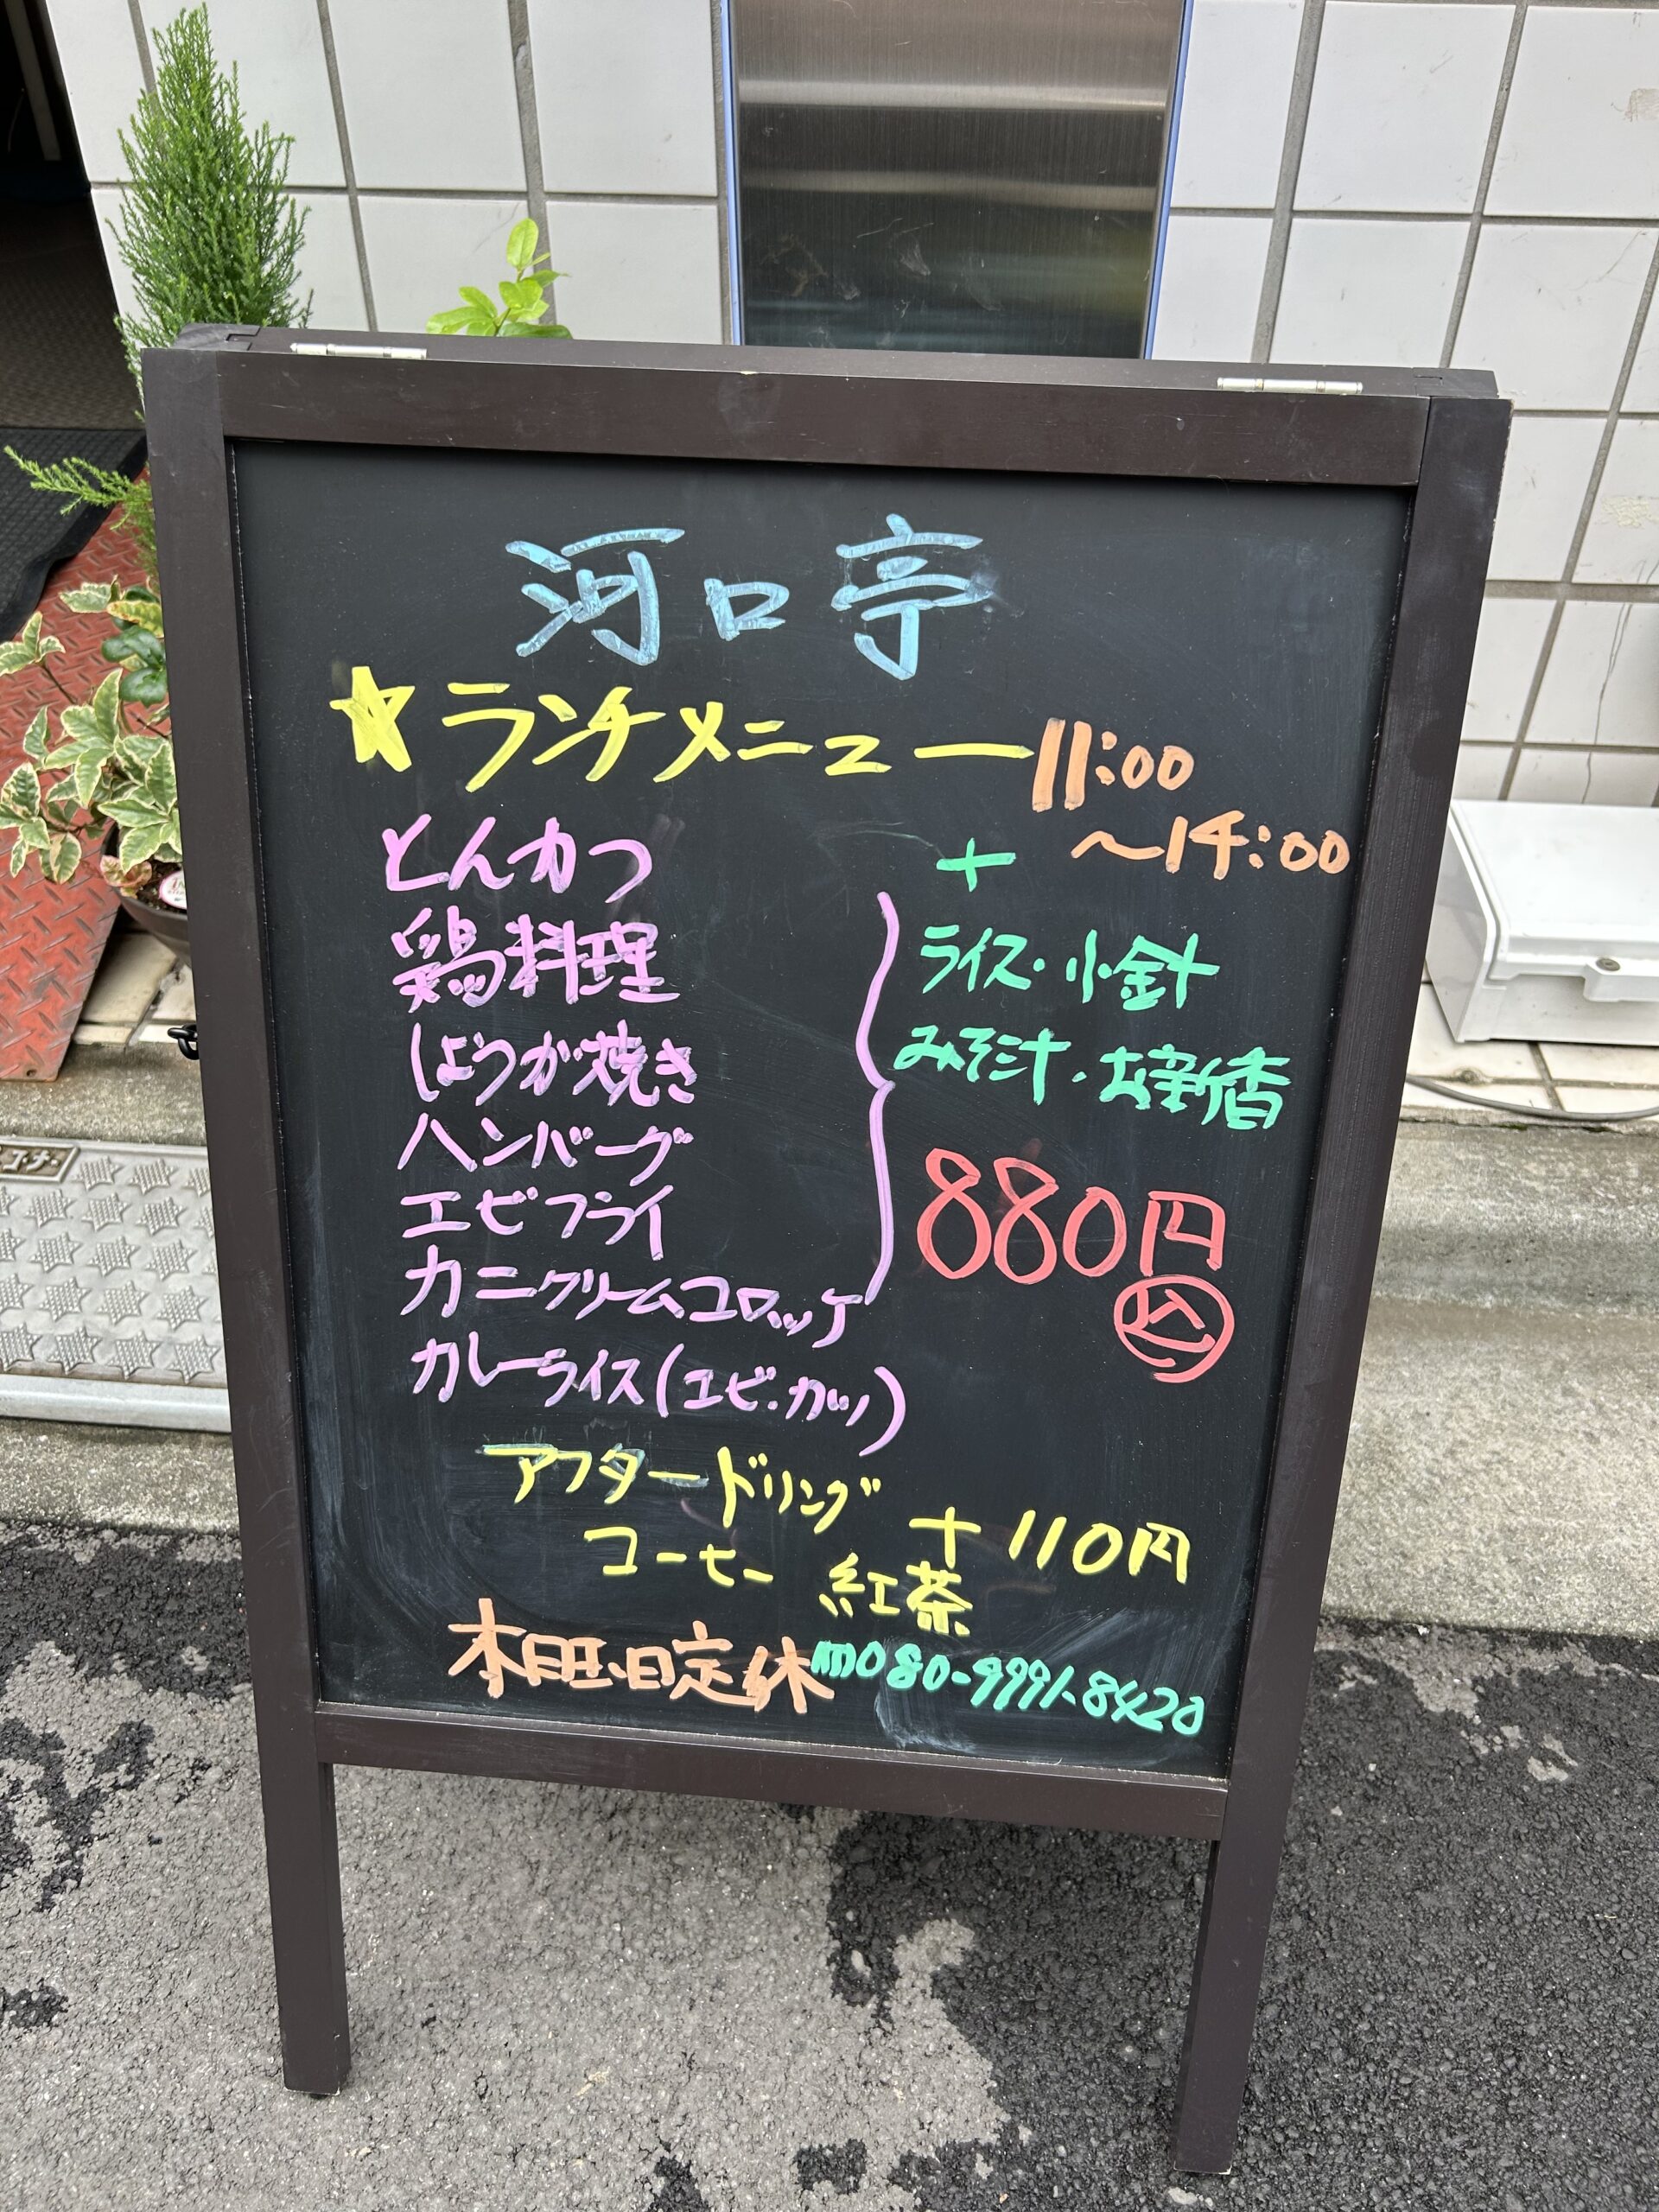 河口亭
★ランチメニュー 11:00
～14:00
とんかつ
鶏料理
しょうが焼き
ハンバーグ
エビフライ
カニクリームコロッケ
カレーライス(エビ・カツ)
+
ライス・小針
みそ汁・お新香
880円
込
アフタードリング
コーヒー 紅茶
+110円
木日定休
080-9991-8420